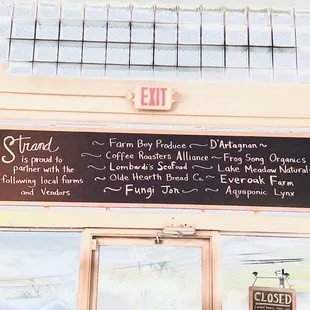 EXIT
Strand
is proud to
partner with the
following local farms
and Vendors
~ Farm Boy Produce ~
~ Coffee Roasters Alliance ~
~ Lombardi's Seafood ~
~ Olde Hearth Bread Co. ~
~ Fungi Jon ~
D'Artagnan ~
Frog Song Organics
Lake Meadow Naturals
Everoak Farm
Aquaponic Lynx
CLOSED